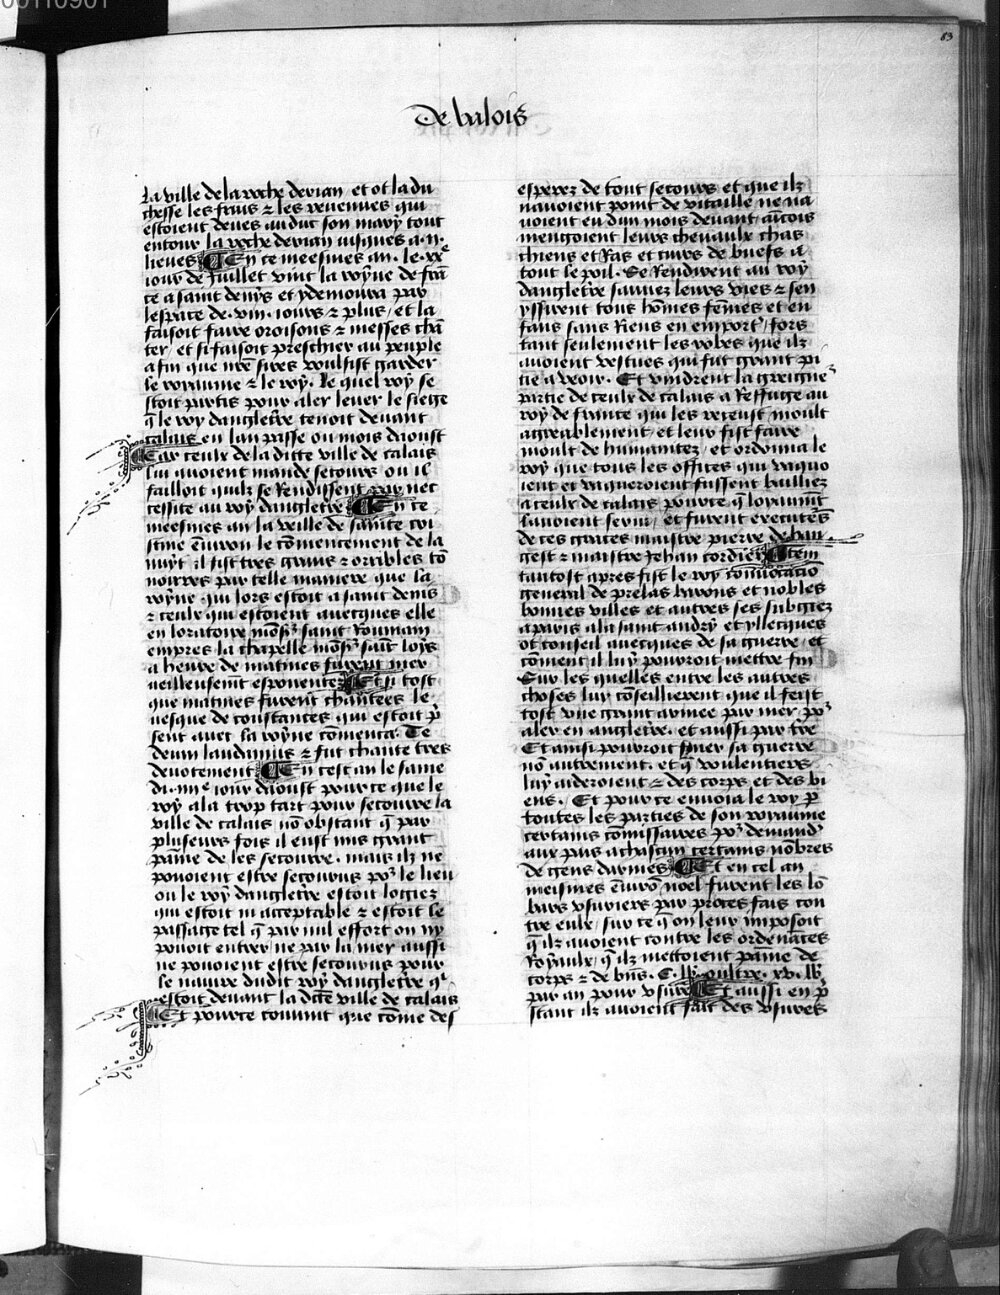 00110901
83
De valois
La ville de la roche derian / et ot la du
chesse les fruis ⁊ les revenues qui
estoient deues au duc son mary tout
entour la roche derian iusques a .ii.
lieues ¶ En ce meesmes an . le .xxe
iour de Juillet vint la royne de frã
ce a saint denys et y demoura par
lespace de .viii. iours ⁊ plus / et la
faisoit faire oroisons ⁊ messes chã
ter / et si faisoit preschier au peuple
a fin que nr̃e sires voulsist garder
le royaume ⁊ le roy . le quel roy se
stoit partis pour aler lever le siege
q̃ le roy dangleterre tenoit devant
calais en lan passe ou mois daoust
Car ceulx de la ditte ville de calais
lui avoient mande secours ou il
failloit quilz se Rendissent par nec
cessite au roy dangleterre ¶ En ce
meesmes an la ville de sainte cri
stine environ le cõmencement de la
nuyt il fist tres grans ⁊ orribles tõ
noirres par telle maniere que la
royne qui lors estoit a saint denis
⁊ ceulx qui estoient avecques elle
en loratoire monss̃ saint Roumain
empres la chapelle monss̃ sait loys
a heure de matines furent mer
veilleusemẽt espouentez ¶ Et si tost
que matines furent chantees le
vesque de constances qui estoit p̃
sent avec la royne cõmenca . Te
deum laudamus ⁊ fut chante tres
devotement ¶ En cest an le same
di .iiiie iour daoust pour ce que le
roy ala trop tart pour secourre la
ville de calais nõ obstant q̃ par
pluseurs fois il eust mis grant
paine de les secourre . mais ilz ne
povoient estre secourus po᷑ le lieu
ou le roy dangleterre estoit logiez
qui estoit in acceptable ⁊ estoit le
passage tel q̃ par nul effort on ny
povoit entrer / ne par la mer aussi
ne povoient estre secourus pour
le navire dudit roy dangleterre q̃
estoit devant la dicte ville de calais
Et pource convint que cõme des
esperez de tout secours et que ilz
navoient point de vitaille ne na
voient eu dun mois devant / aĩcois
mengoient leurs chevaulx chas
chiens et Ras et cuirs de buefs a
tout le poil . Se Rendirent au roy
dangleterre sauvez leurs vies ⁊ sen
yssirent tous hõmes fẽmes et en
fans sans Riens en emport᷑ / fors
tant seulement les robes que ilz
avoient vestues qui fut grant pi
tie a veoir . Et vindrent la greigne᷑
partie de ceulx de calais a Reffuge au
roy de france qui les receust moult
agreablement / et leur fist faire
moult de humanitez / et ordonna le
roy que tous les offices qui vaquo
ient et vaqueroient fussent bailliez
a ceulx de calais pource q̃ loyaumẽt
lavoient servi / et furent executeᷣs
de ces graces maistre pierre de han
gest ⁊ maistre jehan cordier ¶ Item
tantost apres fist le roy convocacio
general de prelas barons et nobles
bonnes villes et autres ses subgiez
a paris a la saint andry et yllecques
ot conseil avecques de sa guerre / et
cõment il luy pourroit mettre fin
Sur les quelles entre les autres
choses luy cõseillierent que il feist
tost une grant armee par mer / po᷑
aler en angleterre . et aussi par tr̃re
Et ainsi pourroit finer sa guerre
nõ autrement . et q̃ voulentiers
luy aideroient ⁊ des corps et des bi
ens . Et pour ce envoia le roy p̃
toutes les parties de son royaume
certains cõmissaires po᷑ demand᷑
aux pais a chascun certains nõbres
de gens darmes ¶ Et en cel an
meismes enviro noel furent les lõ
bars usuriers par proces fais con
tre eulx / sur ce q̃ on leur imposoit
q̃ ilz avoient contre les ordenãces
Royaulx / q̃ ilz mettoient paine de
corps ⁊ de biẽs . C . lb oultre . xv . lb
par an pour usure ¶ Et aussi en p̃
stant ilz avoient fait des usures